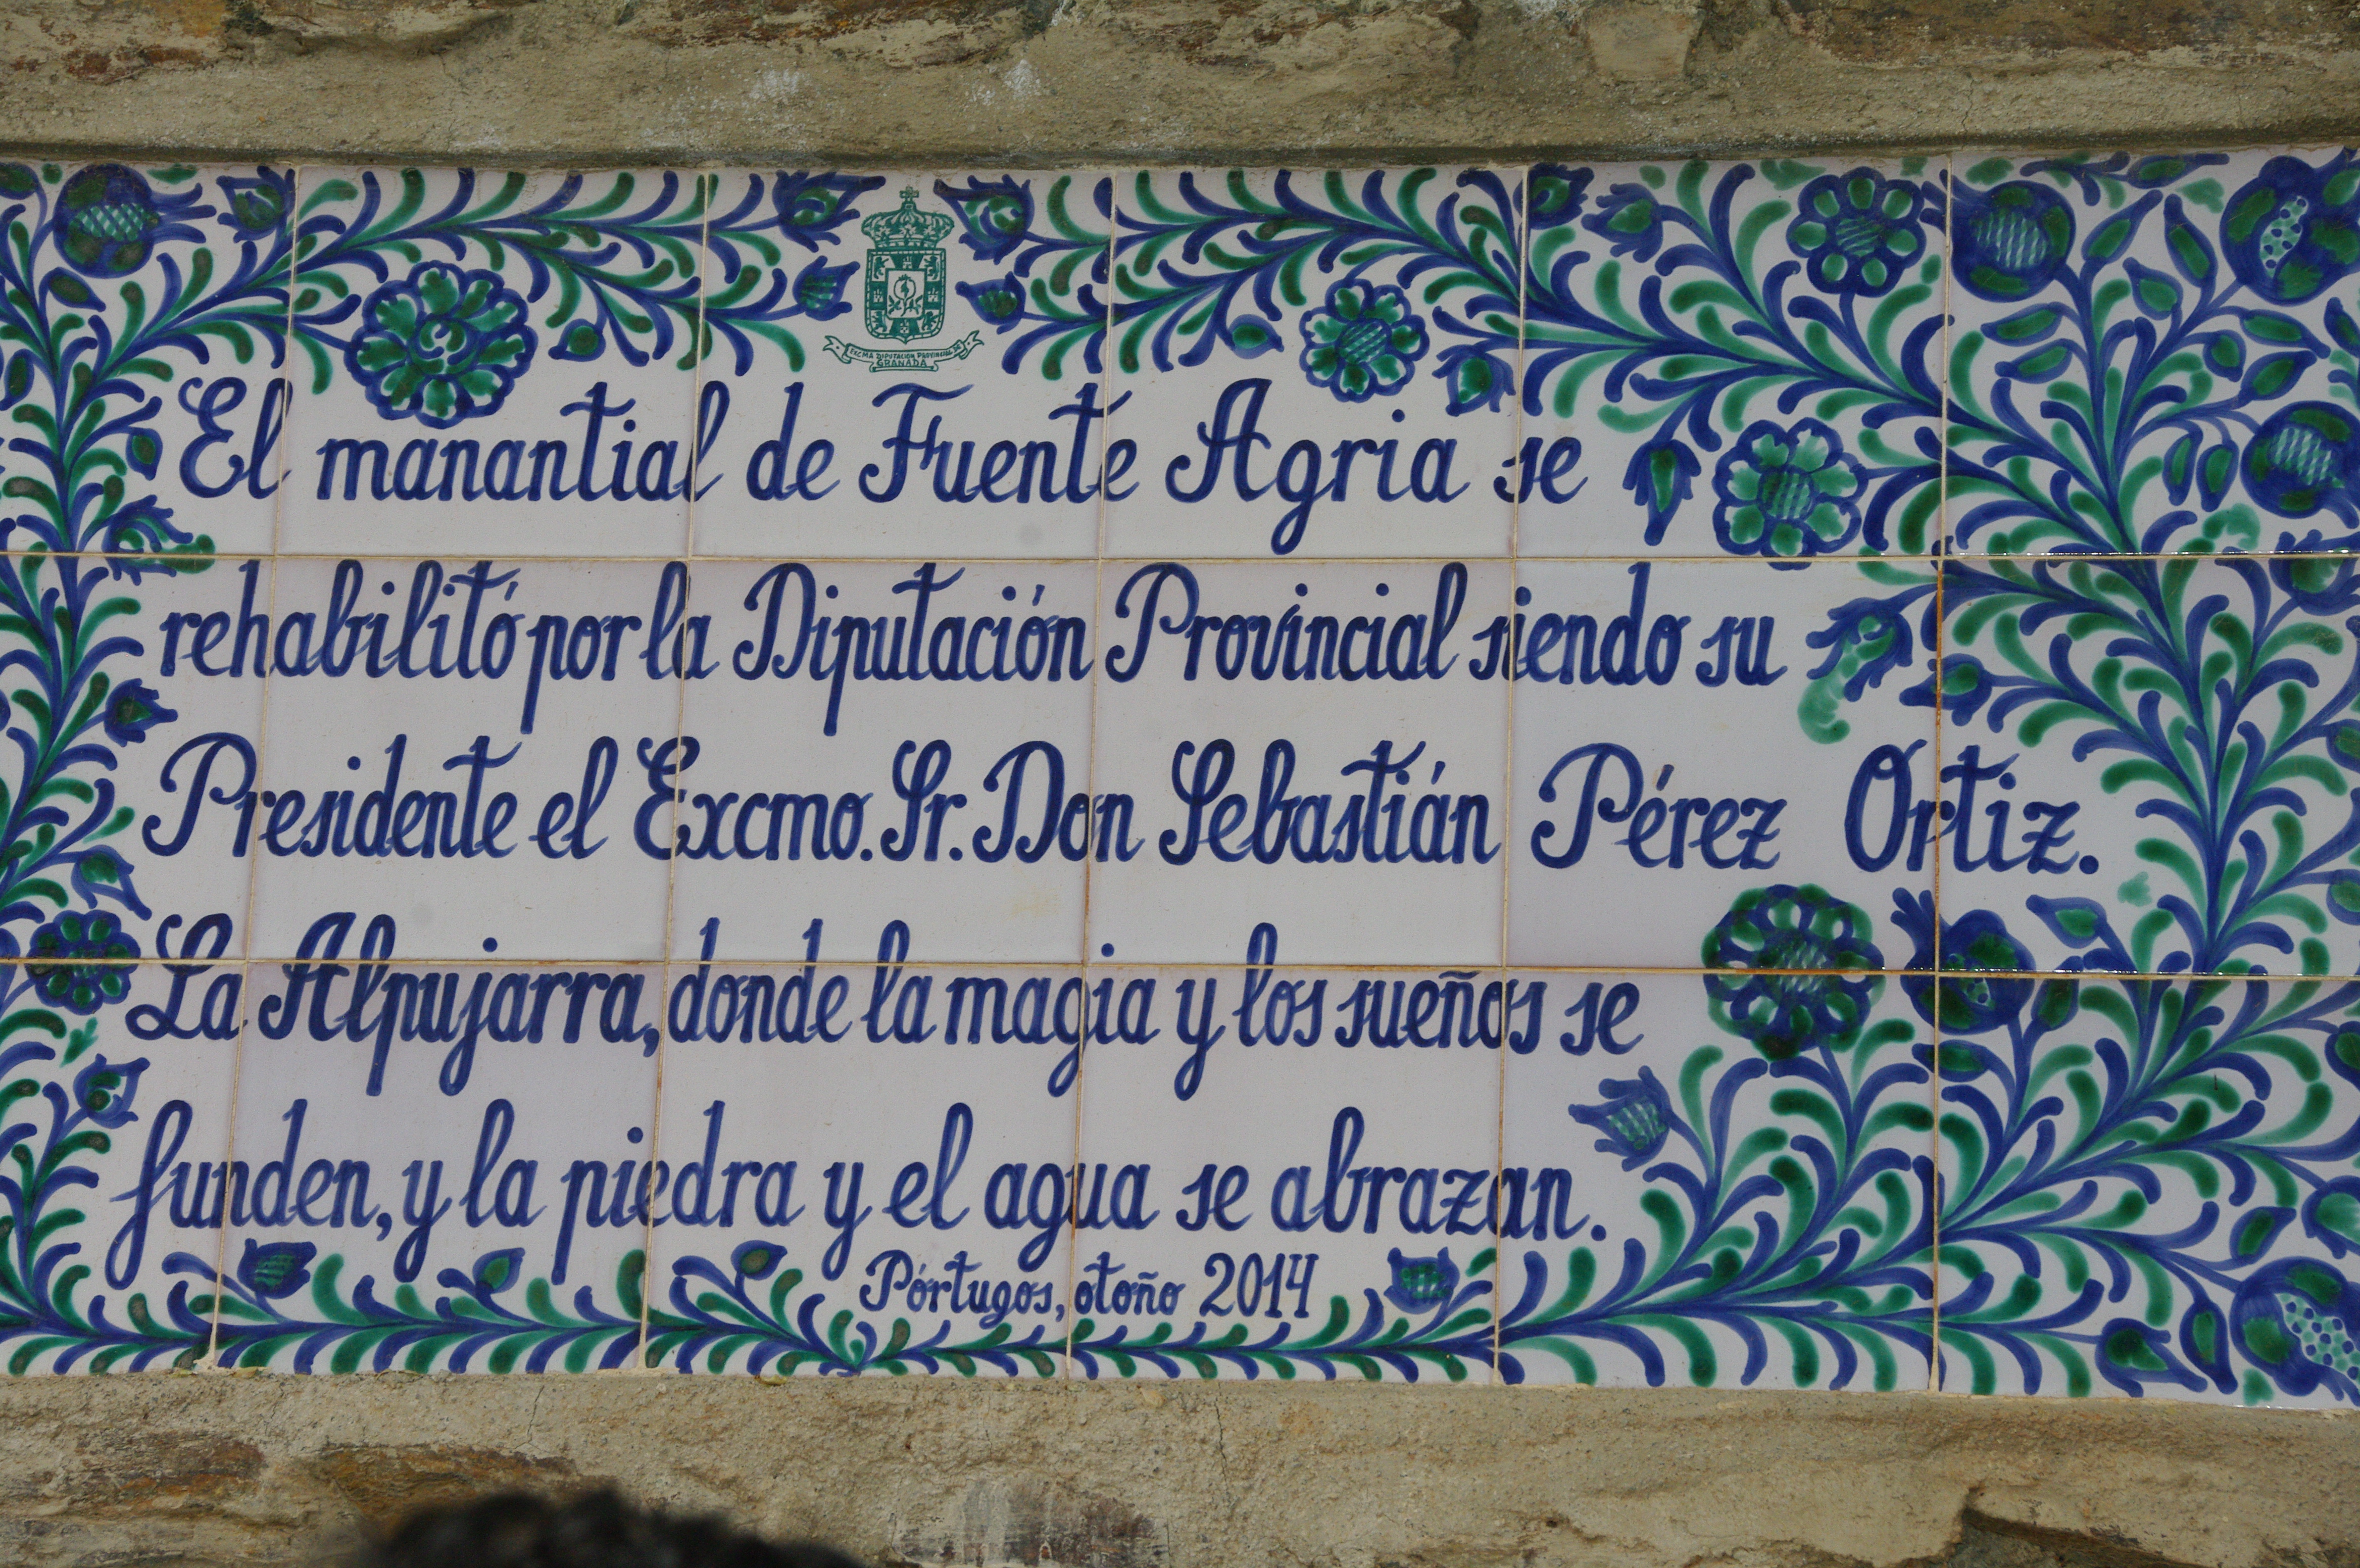 EXCMA DIPUTACIÓN PROVINCIAL DE
GRANADA
El manantial de Fuente Agria se
rehabilitó por la Diputación Provincial siendo su
Presidente el Excmo. Sr. Don Sebastián Pérez Ortiz.
La Alpujarra, donde la magia y los sueños se
funden, y la piedra y el agua se abrazan.
Pórtugos, otoño 2014